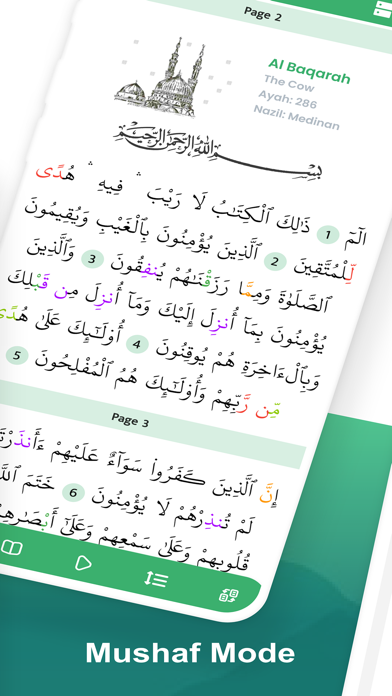 Page 2
Al Baqarah
The Cow
Ayah: 286
Nazil: Medinan
بِسْمِ اللَّهِ الرَّحْمَٰنِ الرَّحِيمِ
الٓمٓ 1 ذَٰلِكَ ٱلْكِتَٰبُ لَا رَيْبَ ۛ فِيهِ ۛ هُدًى
لِّلْمُتَّقِينَ 2 ٱلَّذِينَ يُؤْمِنُونَ بِٱلْغَيْبِ وَيُقِيمُونَ
ٱلصَّلَوٰةَ وَمِمَّا رَزَقْنَٰهُمْ يُنفِقُونَ 3 وَٱلَّذِينَ
يُؤْمِنُونَ بِمَآ أُنزِلَ إِلَيْكَ وَمَآ أُنزِلَ مِن قَبْلِكَ
وَبِٱلْءَاخِرَةِ هُمْ يُوقِنُونَ 4 أُو۟لَٰٓئِكَ عَلَىٰ هُدًى
مِّن رَّبِّهِمْ وَأُو۟لَٰٓئِكَ هُمُ ٱلْمُفْلِحُونَ 5
Page 3
إِنَّ ٱلَّذِينَ كَفَرُوا۟ سَوَآءٌ عَلَيْهِمْ ءَأَنذَرْتَ
لَمْ تُنذِرْهُمْ لَا يُؤْمِنُونَ 6 خَتَمَ ٱللَّ
قُلُوبِهِمْ وَعَلَىٰ سَمْعِهِمْ وَعَلَىٰٓ أَبْصَٰرِهِ
Mushaf Mode